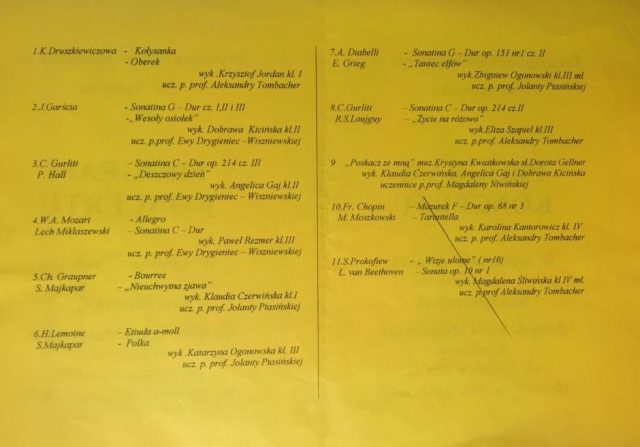 1.K.Druszkiewiczowa - Kołysanka
- Oberek
wyk .Krzysztof Jordan kl. I
ucz. p. prof. Aleksandry Tombacher
2.J.Garścia - Sonatina G – Dur cz. I,II i III
-„Wesoły osiołek"
wyk. Dobrawa Kicińska kl.II
ucz. p. prof. Ewy Drygieniec – Wiszniewskiej
3.C. Gurlitt - Sonatina C – Dur op. 214 cz. III
P. Hall - „Deszczowy dzień"
wyk. Angelica Gaj kl.II
ucz. p. prof. Ewy Drygieniec – Wiszniewskiej
4.W.A. Mozart - Allegro
Lech Miklaszewski - Sonatina C – Dur
wyk. Paweł Rezmer kl.III
ucz. p. prof. Ewy Drygieniec – Wiszniewskiej
5.Ch. Graupner - Bourree
S. Majkapar - „Nieuchwytna zjawa"
wyk. Klaudia Czerwińska kl.I
ucz. p. prof. Jolanty Ptasińskiej
6.H.Lemoine – Etiuda a-moll
S.Majkapar - Polka
wyk .Katarzyna Ogonowska kl. III
ucz. p. prof. Jolanty Ptasińskiej
7.A. Diabelli - Sonatina G – Dur op. 151 nr1 cz. II
E. Grieg - „Taniec elfów"
wyk.Zbigniew Ogonowski kl.III ml.
ucz. p. prof. Jolanty Ptasińskiej
8.C.Gurlitt - Sonatina C – Dur op. 214 cz.II
R.S.Loujguy - „Życie na różowo"
wyk.Eliza Szapiel kl.III
ucz. p. prof. Aleksandry Tombacher
9 „Poskacz ze mną" muz.Krystyna Kwiatkowska sł.Dorota Gellner
wyk. Klaudia Czerwińska, Angelica Gaj i Dobrawa Kicińska
uczennice p.prof. Magdaleny Niwińskiej
10.Fr. Chopin - Mazurek F – Dur op. 68 nr 3
M. Moszkowski - Tarantella
wyk. Karolina Kantorowicz kl. IV
ucz. p. prof. Aleksandry Tombacher
11.S.Prokofiew – „ Wizje ulotne" ( nr10)
L. van Beethoven – Sonata op. 10 nr 1
wyk. Magdalena Śliwińska kl IV ml.
ucz. p.prof Aleksandry Tombacher